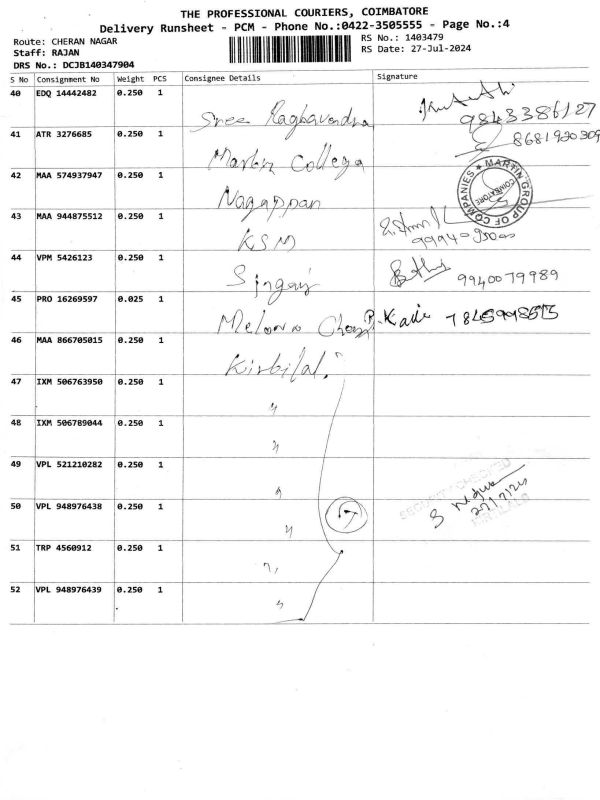 THE PROFESSIONAL COURIERS, COIMBATORE
Delivery Runsheet - PCM - Phone No.:0422-3505555 - Page No.:4
Route: CHERAN NAGAR
Staff: RAJAN
DRS No.: DCJB140347904
RS No.: 1403479
RS Date: 27-Jul-2024
S No Consignment No Weight PCS Consignee Details Signature
40 EDQ 14442482 0.250 1 Sree Raghavendra 9843386127
41 ATR 3276685 0.250 1 Martin College 8681920309
42 MAA 574937947 0.250 1 Nagappan
MARTIN GROUP OF COMPANIES
COIMBATORE
43 MAA 944875512 0.250 1 KSM
44 VPM 5426123 0.250 1 9940079989
45 PRO 16269597 0.025 1
46 MAA 866705015 0.250 1 Kirbilal.
47 IXM 506763950 0.250 1 "
48 IXM 506789044 0.250 1 "
49 VPL 521210282 0.250 1 "
50 VPL 948976438 0.250 1 " 7 27/7/24
51 TRP 4560912 0.250 1 "
52 VPL 948976439 0.250 1 "